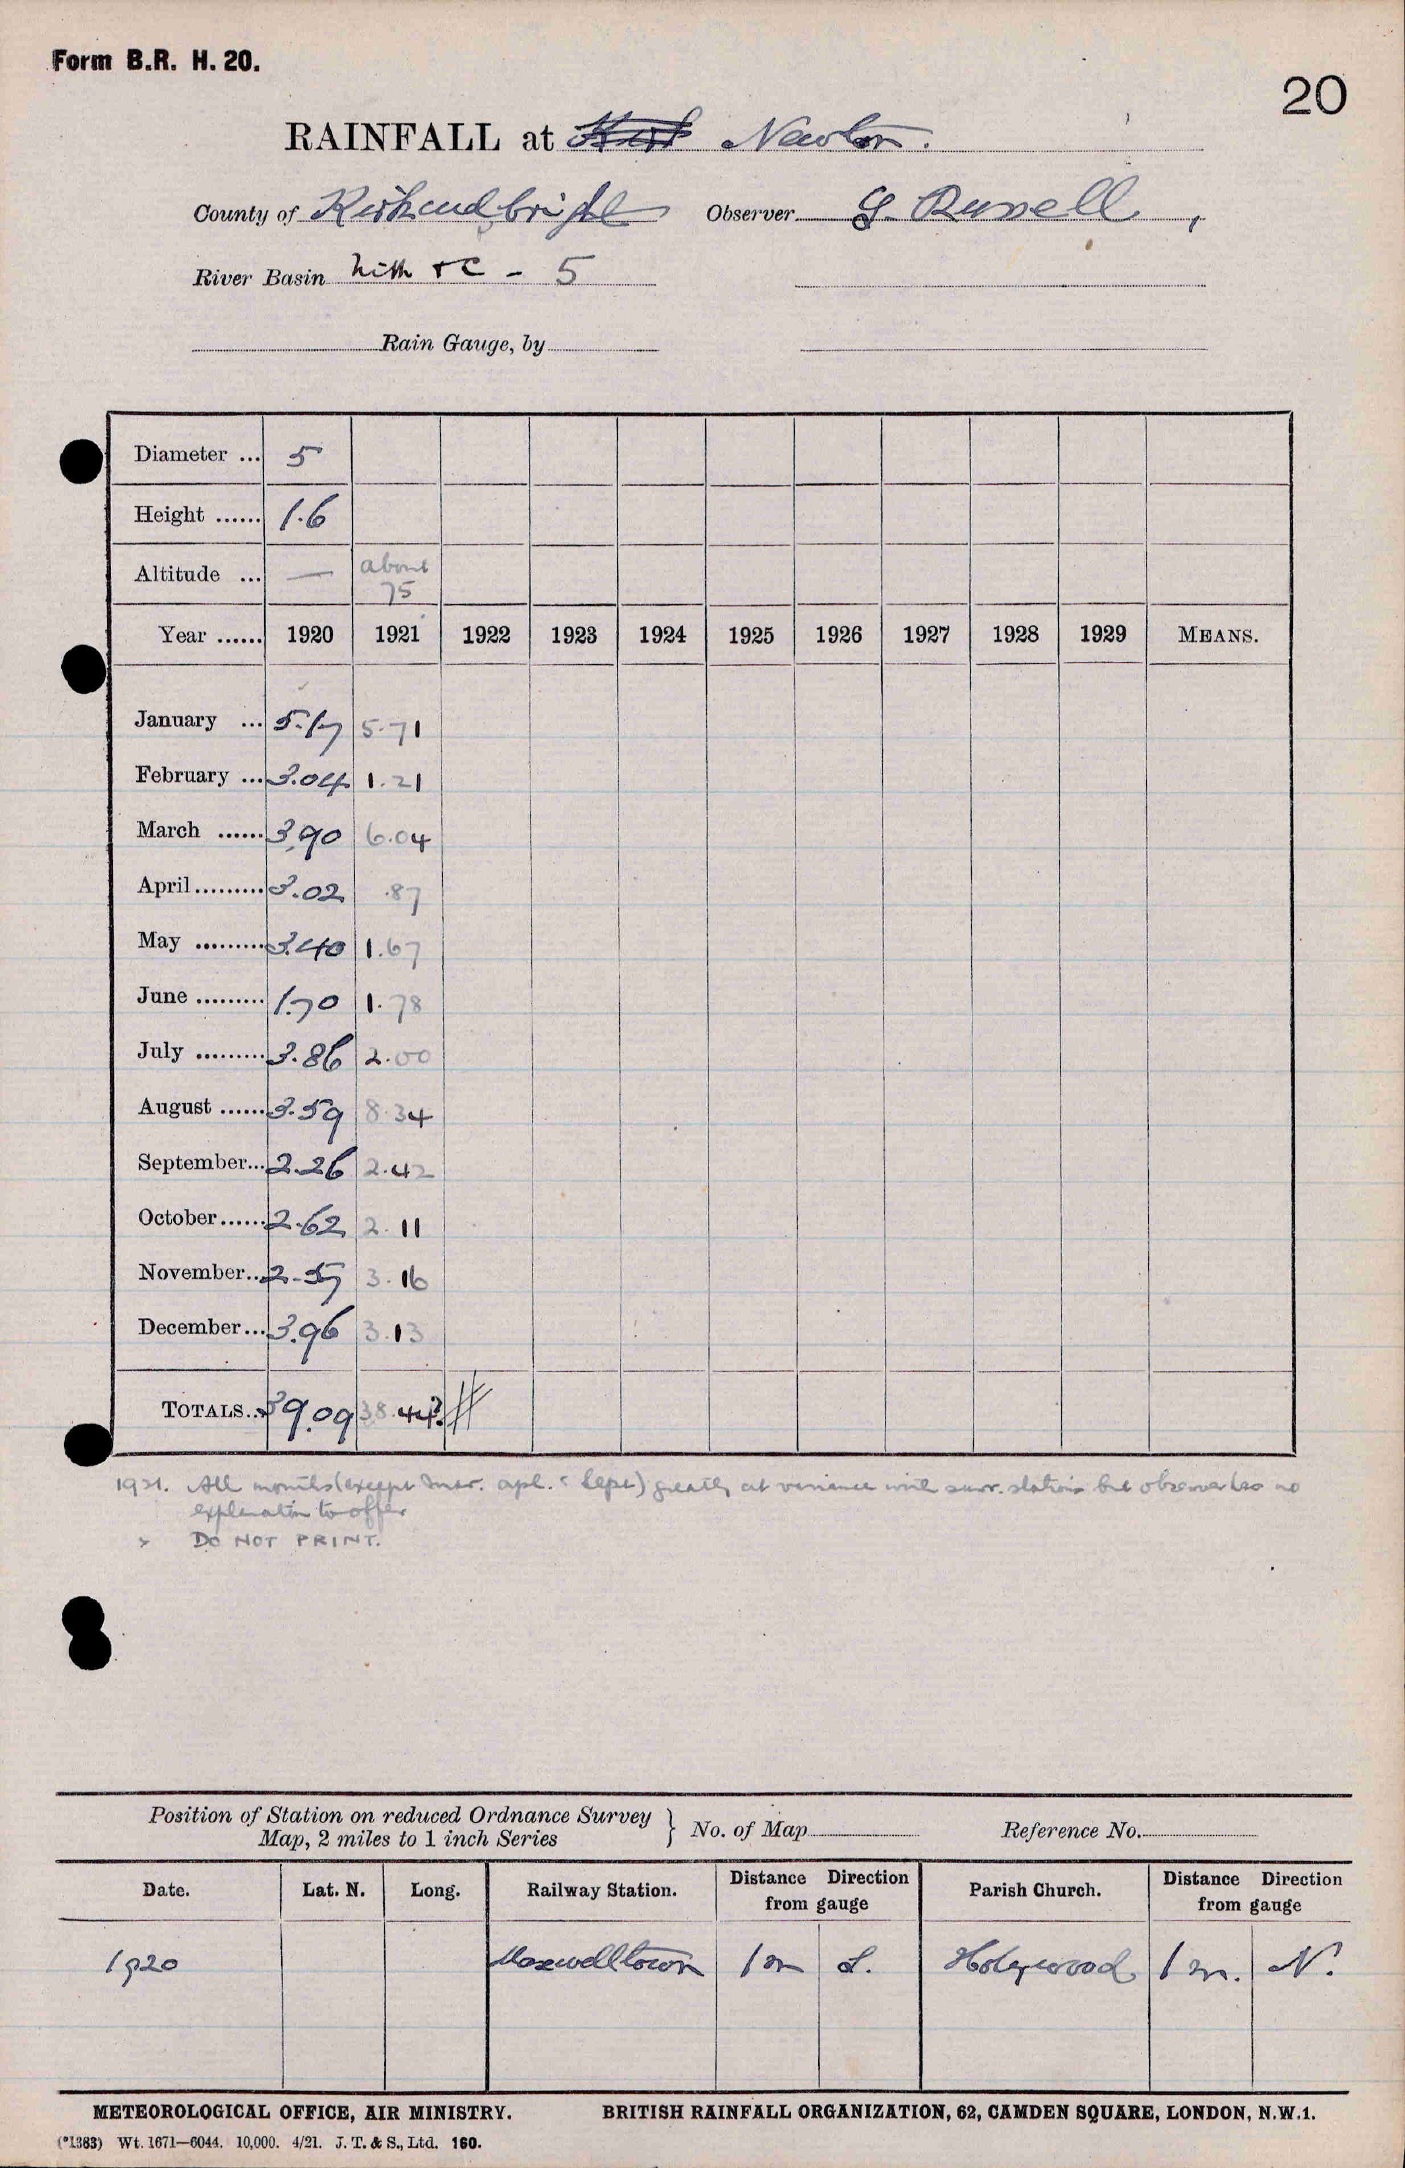 Form B.R. H. 20.
20
RAINFALL at Newton.
County of Kirkcudbright Observer G. Russell
River Basin Nith + C - 5
Rain Gauge, by
Diameter ... 5
Height ...... 1.6
Altitude ... — about 75
Year ...... 1920 1921 1922 1923 1924 1925 1926 1927 1928 1929 MEANS.
January ... 5.17 5.71
February ... 3.04 1.21
March ...... 3.90 6.04
April ......... 3.02 .87
May ......... 3.40 1.67
June ......... 1.70 1.78
July ......... 3.86 2.00
August ...... 3.59 8.34
September... 2.26 2.42
October...... 2.62 2.11
November... 2.57 3.16
December... 3.96 3.13
TOTALS... 39.09 38.44?
1921. All months (except Mar. apl. & Sept) greatly at variance with surr. stations but observer has no
explanation to offer
x DO NOT PRINT.
Position of Station on reduced Ordnance Survey
Map, 2 miles to 1 inch Series } No. of Map Reference No.
Date. Lat. N. Long. Railway Station. Distance Direction from gauge Parish Church. Distance Direction from gauge
1920 Maxwelltown 1 m Holywood 1 m. N.
METEOROLOGICAL OFFICE, AIR MINISTRY. BRITISH RAINFALL ORGANIZATION, 62, CAMDEN SQUARE, LONDON, N.W.1.
(*1383) Wt. 1671—6044. 10,000. 4/21. J. T. & S., Ltd. 160.